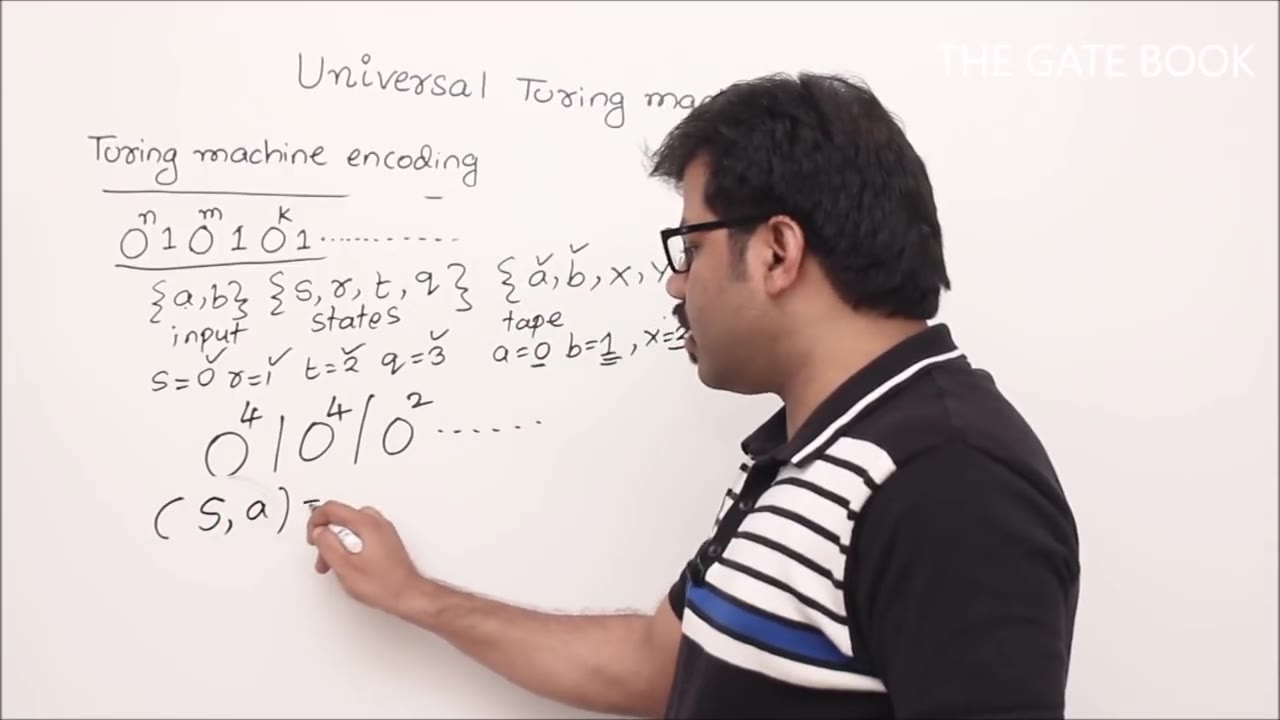 THE GATE BOOK
Universal Turing
Turing machine encoding
0ⁿ 1 0ᵐ 1 0ᵏ 1 ..............
{a,b} {s, r, t, q} {a, b, x, y
input states tape
s=0 r=1 t=2 q=3 a=0 b=1 , x=2
0⁴ | 0⁴ | 0² ......
( S, a ) =